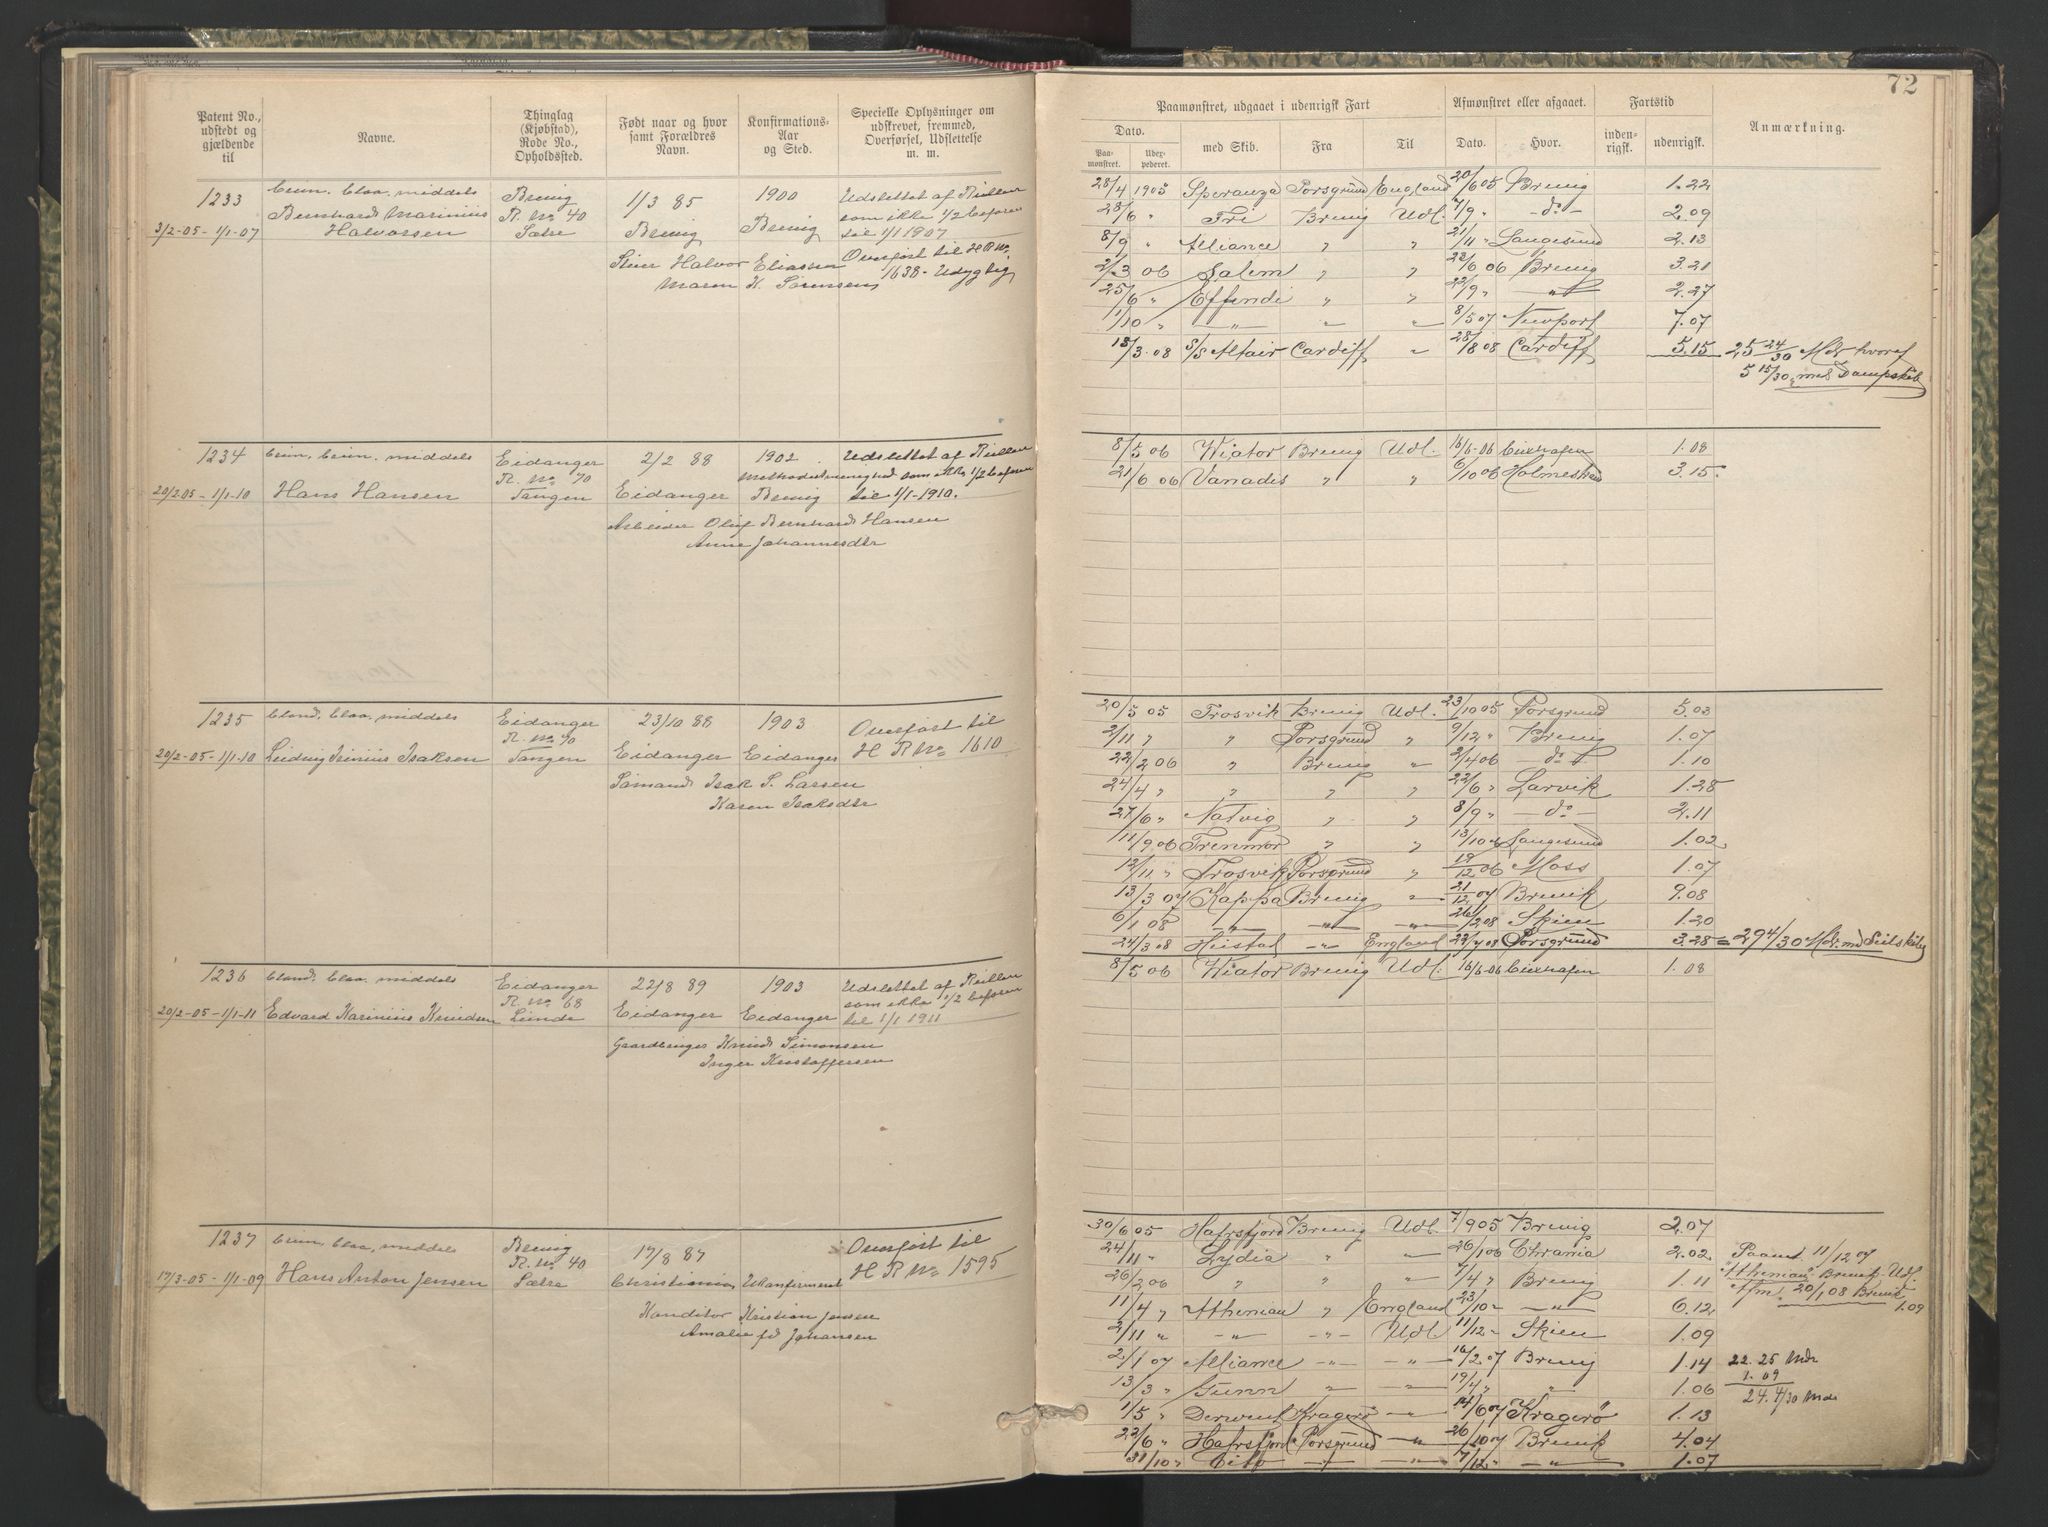 72
Patent No., udstedt og gjældende til
Navne.
Thinglag (Kjøbstad), Rode No., Opholdssted.
Født naar og hvor samt Forældres Navn.
Konfirmations-Aar og Sted.
Specielle Oplysninger om udskrevet, fremmed, Overførsel, Udslettelse m. m.
Paamønstret, udgaaet i udenrigsk Fart
Afmønstret eller afgaaet.
Fartstid
Anmærkning.
Dato.
Paamønstret.
Uderpederet.
med Skib.
Fra
Til
Dato.
Hvor.
indenrigsk.
udenrigsk.
1233
3/2-05-1/1-07
blaa, middels
Bernhard Marinius
Halvorsen
Brevig
R. No 40
Sætre
1/3 85
Brevig
1900
Brevig
Halvor Eliassen
Maren K. Sørensen
Udslettet af Rullen
som ikke 1/2 befaren
til 1/1 1907
Overført til H R No
1638 - Udygtig
28/4 1905 Speranza Porsgrund England 20/6 05 Brevig 1.22
28/6 " Fri Brevig Udl. 7/9 " -do- 2.09
8/9 " Alliance " " 21/11 " Langesund 2.13
2/3 06 Salem " " 22/6 06 Brevig 3.21
25/6 " Effendi " " 22/9 " -"- 2.27
1/10 " -"- " " 8/5 07 Newport 7.07
13/3 08 S/S Altair Cardiff " 28/8 08 Cardiff 5.15 25 24/30 Mdr hvoraf
5 15/30 med Dampskib
1234
20/2 05-1/1-10
middels
Hans Hansen
Eidanger
R. No 70
Tangen
2/2 88
Eidanger
1902
Methodistmenighed
Brevig
Arbeider Oluf Bernhard Hansen
Anne Johannesdtr
Udslettet af Rullen
som ikke 1/2 befaren
til 1/1-1910.
8/5 06 Wiator Brevig Udl. 16/6-06 Cuxhafen 1.08
21/6 06 Vanadis " " 6/10 06 Holmestrand 3.15
1235
20/2-05-1/1-10
blond, blaa, middels
Ludvig Isinius Isaksen
Eidanger
R. No 70
Tangen
23/10 88
Eidanger
1903
Eidanger
Sømand Isak S. Larsen
Karen Isaksdtr
Overført til
H R No 1610
20/5 05 Trosvik Brevig Udl. 23/10 05 Porsgrund 5.03
2/11 " " Porsgrund " 9/12 " Brevig 1.07
22/2 06 " Brevig " 2/4 06 -do- 1.10
24/4 " " " " 22/6 " Larvik 1.28
27/6 " Natvig " " 8/9 " -do- 2.11
11/9 06 Frenmor " " 13/10 06 Langesund 1.02
12/11 " Trosvik Porsgrund " 19/12 06 Moss 1.07
13/3 07 Kappa Brevig " 21/12 07 Brevik 9.08
6/1 08 -"- -"- -"- 26/2 08 Skien 1.20
24/3 08 Heistad -"- England 22/7 08 Porsgrund 3.28 = 29 4/30 Mdr. med Seilskib
1236
20/2-05-1/1-11
blond, blaa, middels
Edvard Karinius Knudsen
Eidanger
R. No 68
Lunde
22/8 89
Eidanger
1903
Eidanger
Gaardbruger Knud Simonsen
Inger Kristoffersen
Udslettet af Rullen
som ikke 1/2 befaren
til 1/1 1911
8/5 06 Wiator Brevig Udl. 16/6-06 Cuxhafen 1.08
1237
17/3-05-1/1-09
blaa, middels
Hans Anton Jensen
Brevig
R. No 40
Sætre
17/8 87
Christiania
Ukonfirmeret
Konditor Kristian Jensen
Amalie fd Johansen
Overført til
H R No 1595
30/6 05 Hafrsfjord Brevig Udl. 7/9 05 Brevig 2.07
24/11 " Lydia " " 26/1 06 Chrania 2.02
26/2 06 " " " 7/4 " Brevig 1.11
11/4 " Athenian " England 23/10 " -"- 6.12
2/11 " -"- -"- Udl. 11/12 " Skien 1.09
2/1 07 Alliance -"- -"- 16/2 07 Brevig 1.14
13/3 " Gunn " -"- 19/4 " " 1.06
1/5 " Derwent Kragerø -"- 14/6 07 Kragerø 1.13
22/6 " Hafrsfjord Porsgrund -"- 26/10 07 Brevik 4.04
31/10 " Tito -"- -"- 7/12 " -"- 1.07
Paamt. 11/12 07
"Athenian" Brevik-Udl.
Afm. 20/1 08 Brevik
1.09
22.25 Mdr
1.09
24.4/30 Mdr